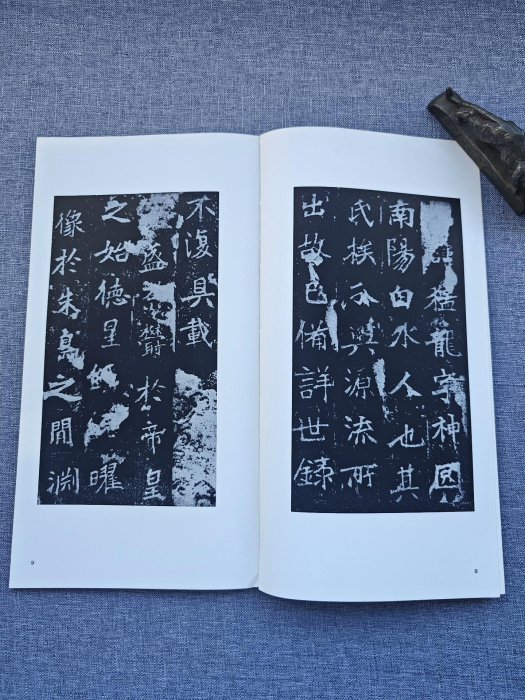 猛龍字神囧
南陽白水人也其
氏族分興源流所
出故已備詳世錄
不復具載
盛欝於帝皇
之始德星曜
像於朱鳥之閒淵
8
9